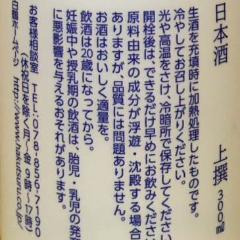 日本酒 上撰 300ml
生酒を充填時に加熱処理したものです。
冷やしてお召し上がりください。
光や高温をさけ、冷暗所で保存してください
開栓後は、できるだけ早めにお飲みくださ
原料由来の成分が浮遊、沈殿する場合
ありますが、品質には問題ありません。
お酒はおいしく適量を。
飲酒は20歳になってから。
妊娠中や授乳期の飲酒は、胎児・乳児の発
に悪影響を与えるおそれがあります。
お客様相談室 TEL:078-856-7190
(休祝日を除く月~金 9時~17時)
白鶴ホームページ http://www.hakutsuru.co.jp/